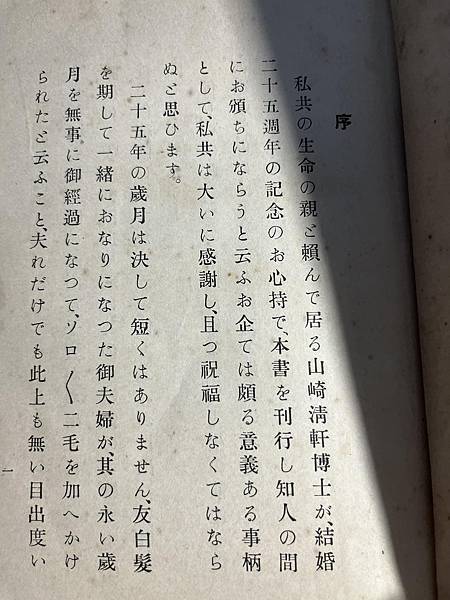 序
私共の生命の親と頼んで居る山崎清軒博士が、結婚
二十五週年の記念のお心持で、本書を刊行し知人の間
にお頒ちにならうと云ふお企ては頗る意義ある事柄
として、私共は大いに感謝し、且つ祝福しなくてはなら
ぬと思ひます。
二十五年の歲月は決して短くはありません、友白髮
を期して一緖におなりになつた御夫婦が、其の永い歲
月を無事に御經過になつて、ソロ〳〵二毛を加へかけ
られたと云ふこと、夫れだけでも此上も無い目出度い
一